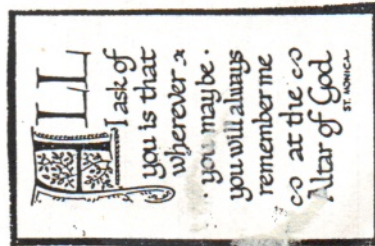 ALL
I ask of
you is that
wherever
you may be.
you will always
remember me
at the
Altar of God
ST. MONICA